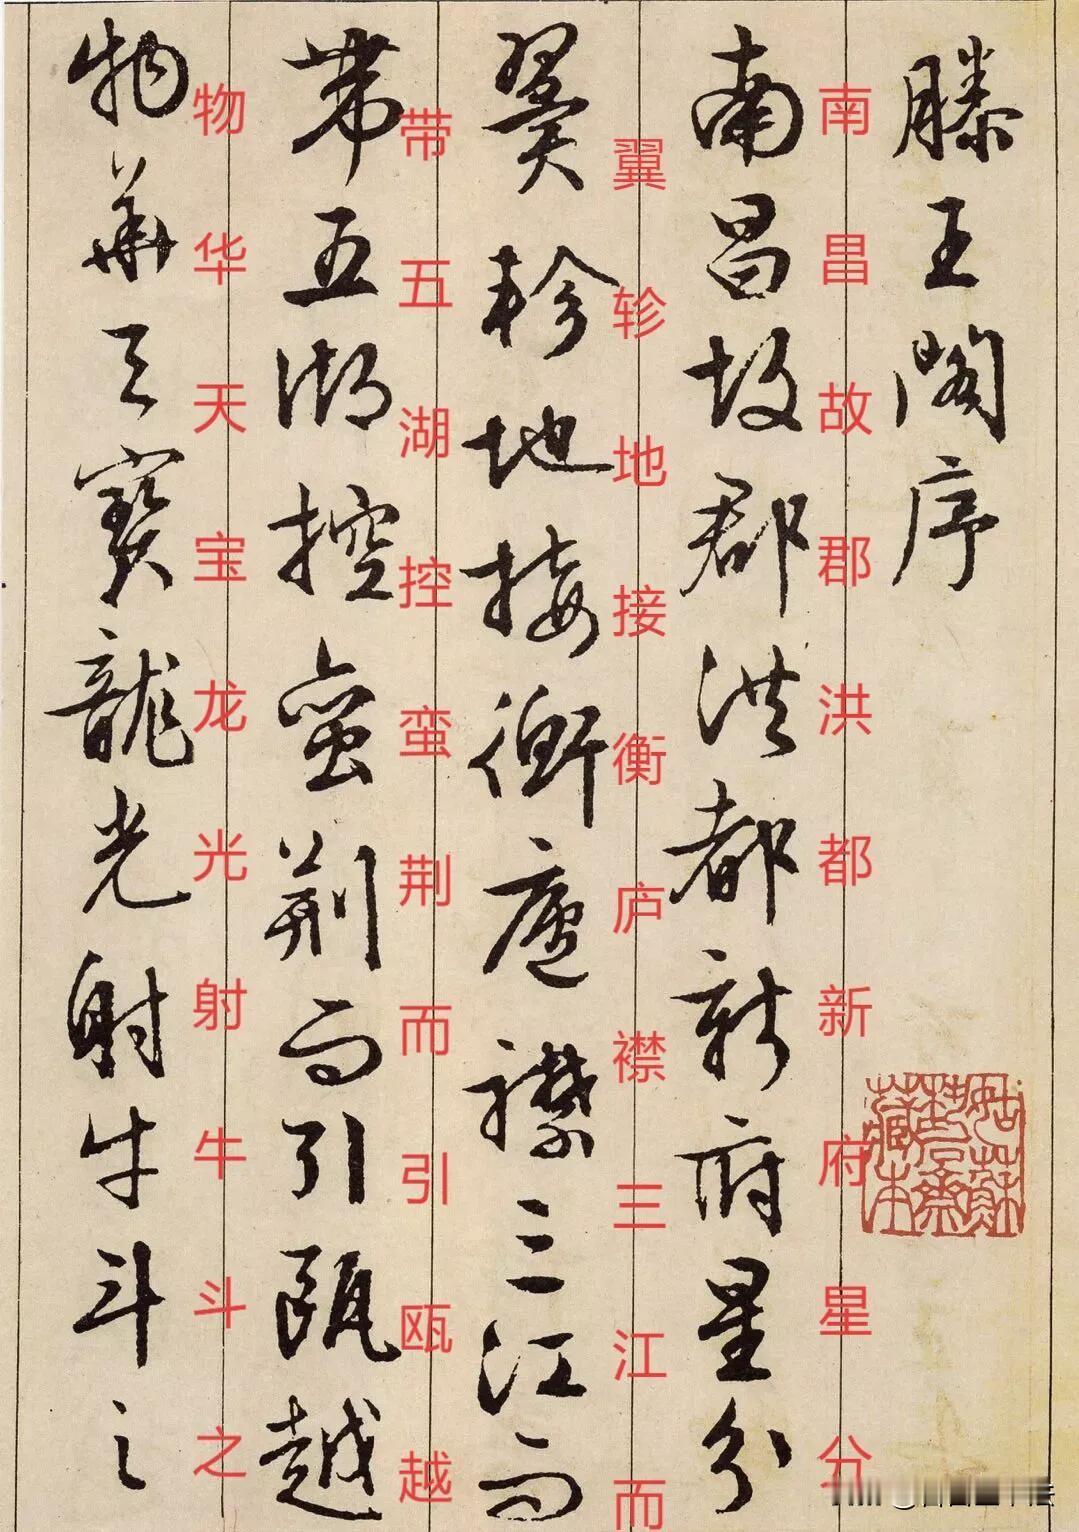 滕王閣序
南昌故郡洪都新府星分
南昌故郡洪都新府星分
翼軫地接衡廬襟三江而
翼轸地接衡庐襟三江而
帶五湖控蠻荊而引甌越
带五湖控蛮荆而引瓯越
物華天寶龍光射牛斗之
物华天宝龙光射牛斗之